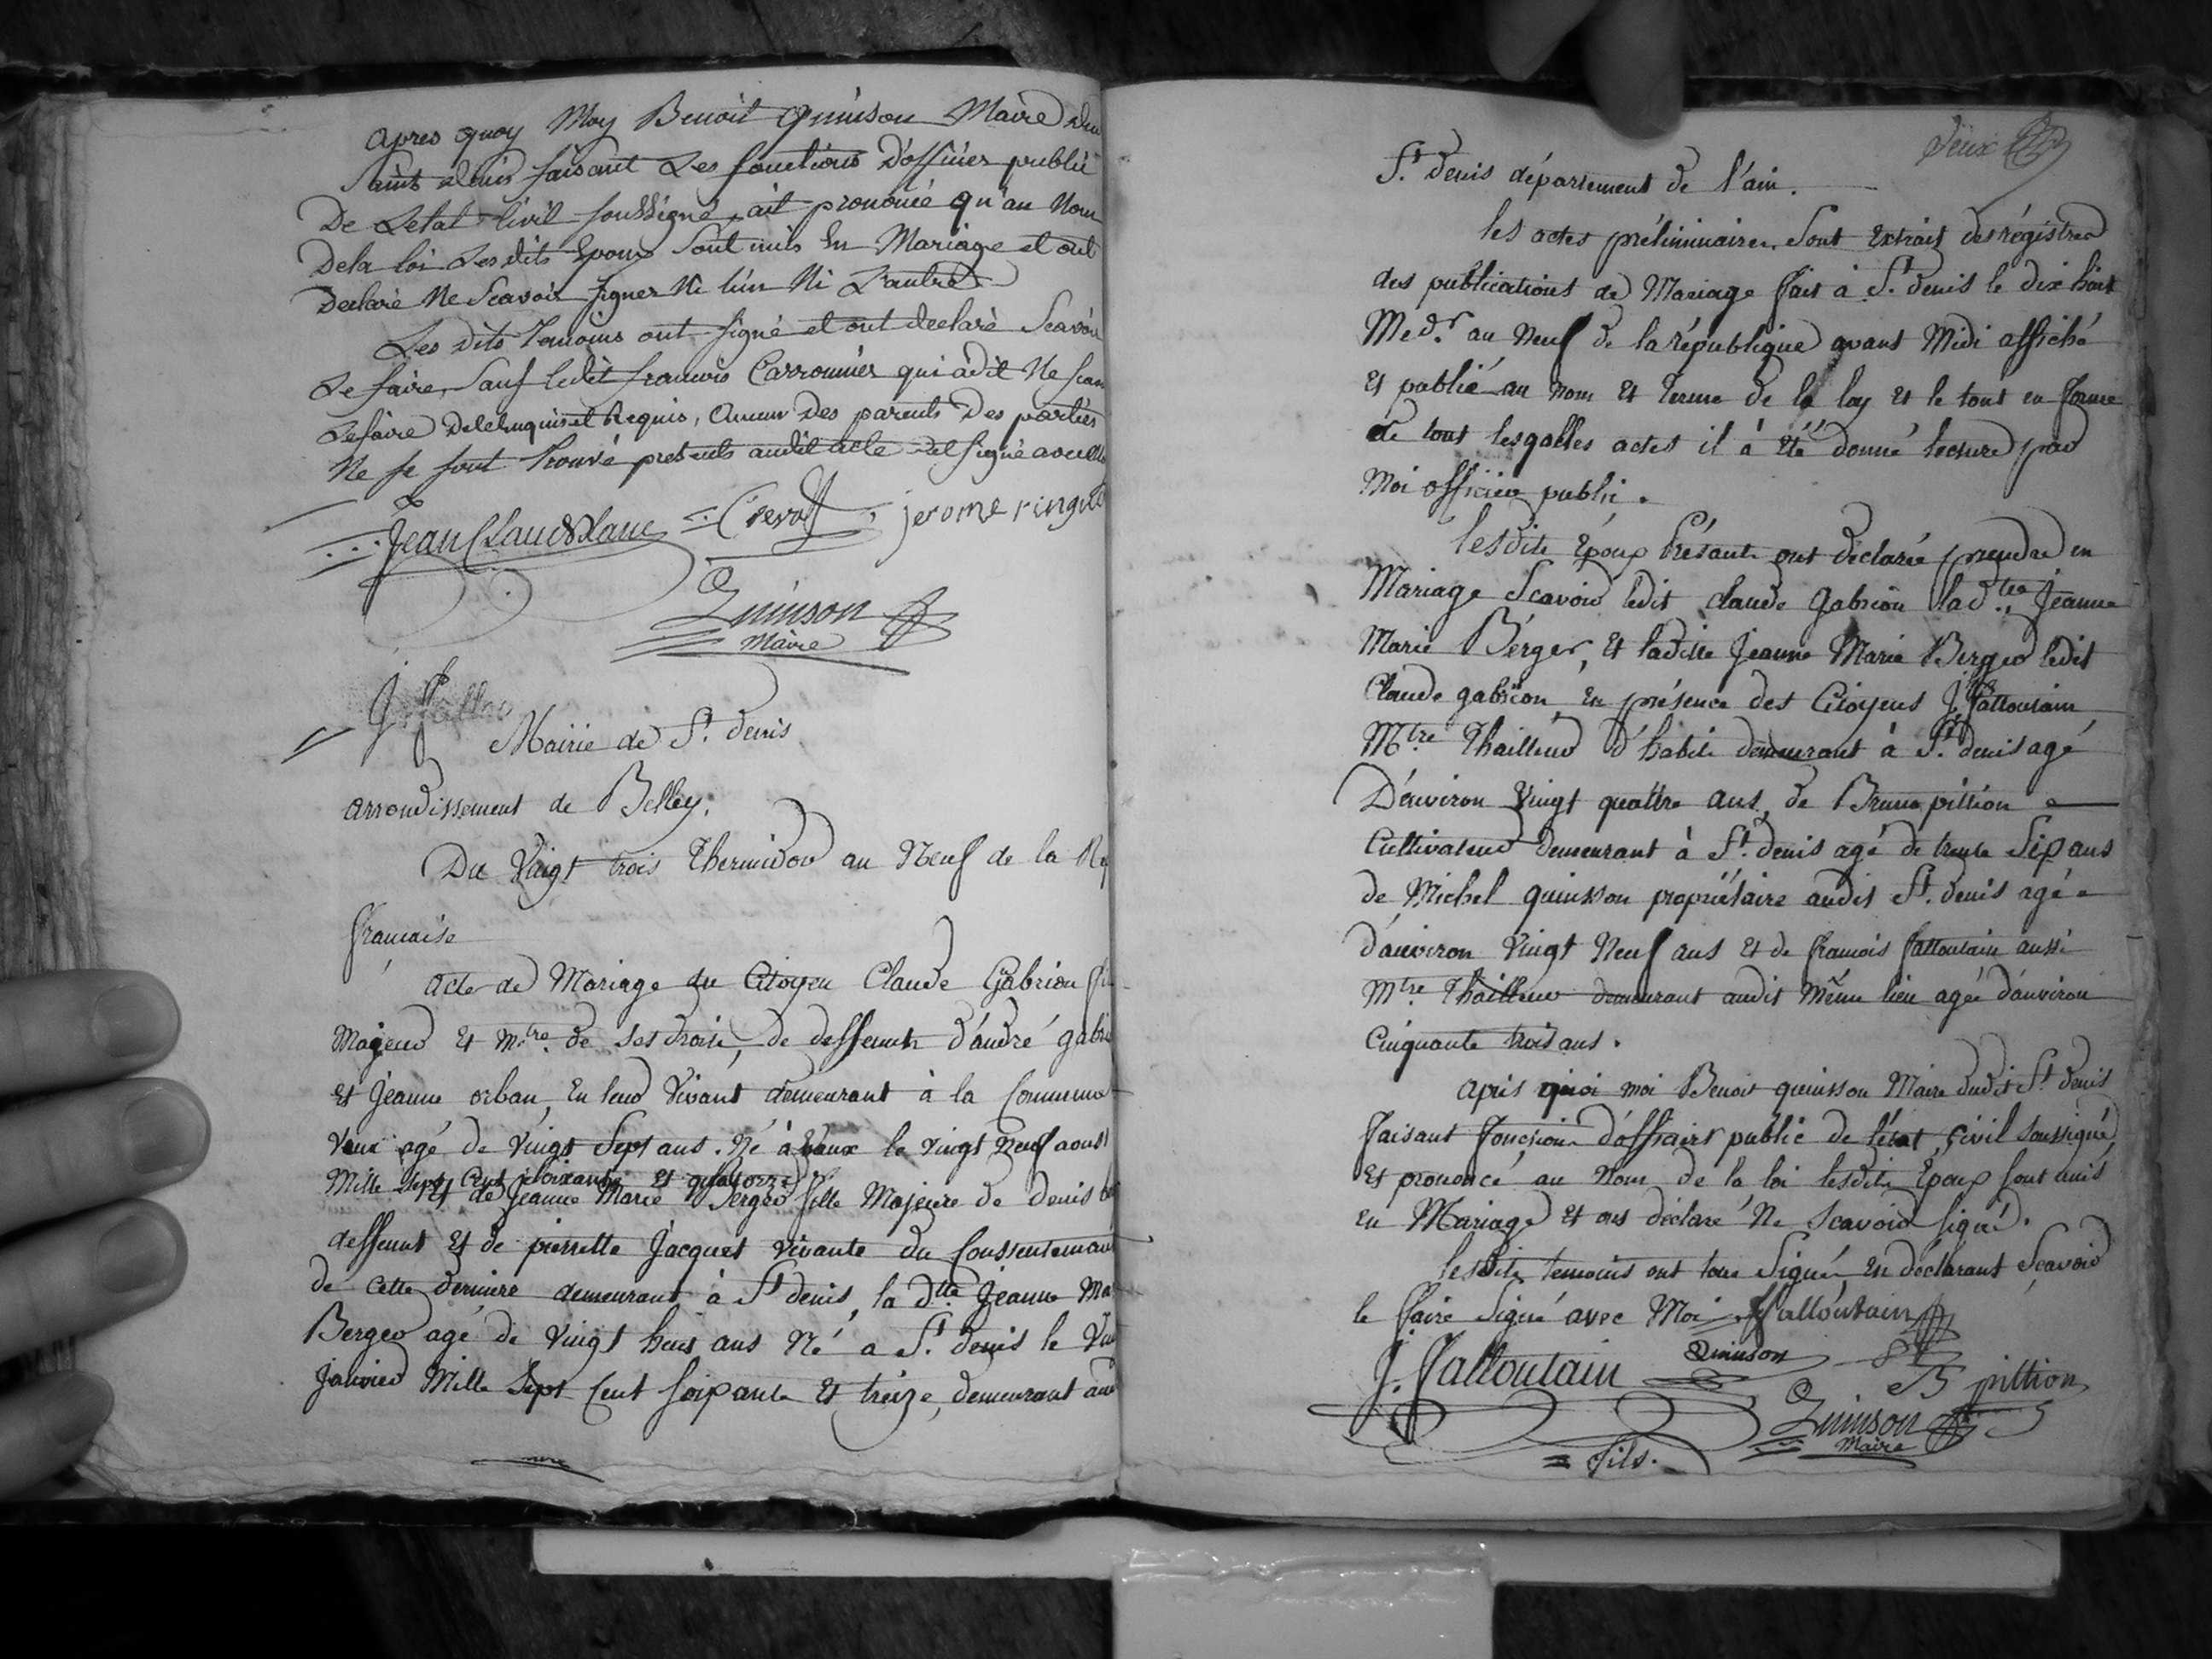 apres quoy Moy Benoit Quinson Maire du
Saint denis faisant Les fonctions D'officier public
De Letat Civil soussigné, ait prononcé qu'au Nom
De la loi Lesdits Epoux sont unis En Mariage et ont
Declaré Ne Scavoir signer Ni l'un Ni L'autre
Les dits temoins ont signé et ont declaré Scavoir
Le faire, sauf ledit francois Carronnier qui a dit Ne
Le faire De enquis et Requis, aucun Des parents Des parties
Ne se sont trouvé presents audit acte et signé avec
Jean Claude Crevost jerome ringuet
Quinson
Maire
Mairie de St. denis
arrondissement de Belley.
Du Vingt trois Thermidor an Neuf de la Re
francaise
acte de Mariage du Citoyen Claude Gabrion fi
Majeur Et mtre. de ses droits, de deffunts d'andré gabri
Et Jeanne orban, En leur Vivant demeurant à la Commune
Vaux agé de Vingt Sept ans. Né à Vaux le vingt Neuf aoust
Mille Sept Cent Soixante Et quatorze
Et de Jeanne Marie Berger fille Majeure de denis be
deffunt Et de pierrette Jacquet vivante du Consentement
de cette derniere demeurant à St denis, la dtte Jeanne Ma
Berger agé de Vingt huit ans Né a St. denis le Vin
Janvier Mille Sept Cent Soixante Et treize, demeurant au
deux
St. denis département de l'ain.
les actes préliminaires Sont Extrait des régistres
des publications de Mariage fait à St. denis le dix huit
Medr. an Neuf de la république avant Midi affiché
Et publié au nom Et terme de la loy Et le tout en forme
de tout lesqelles actes il à Eté donné lecture par
Moi officier public.
lesdits Époux Présants ont déclaré prendre en
Mariage Scavoir ledit Claude Gabrion ladtte Jeanne
Marie Berger, Et ladite Jeanne Marie Berger ledit
Claude gabrion, En présence des Citoyens J. Falloutain
Mtre Thailleur d'habits demeurant à St. denis agé
D'environ Vingt quattre ans, de Bruno pittion
Cultivateur demeurant à St. denis agé de trente Six ans
de Michel quinsson propriétaire audit St. denis agé
d'anviron Vingt Neuf ans Et de francois falloutain aussi
Mtre Thailleur demeurant audit même lieu agée d'anviron
Cinquante trois ans.
après quoi moi Benoit quinsson Maire dudit St denis
faisant fonction d'officier public de l'état civil soussigné,
Et prononcé au Nom de la loi lesdits Epoux sont unis
En Mariage Et ons déclaré Ne Scavoir signé.
lesdits temoins ont tous Signé, En déclarant Scavoir
le faire Signé avec Moi. falloutain
J. Falloutain Quinson B pittion
Quinson
Maire
fils.